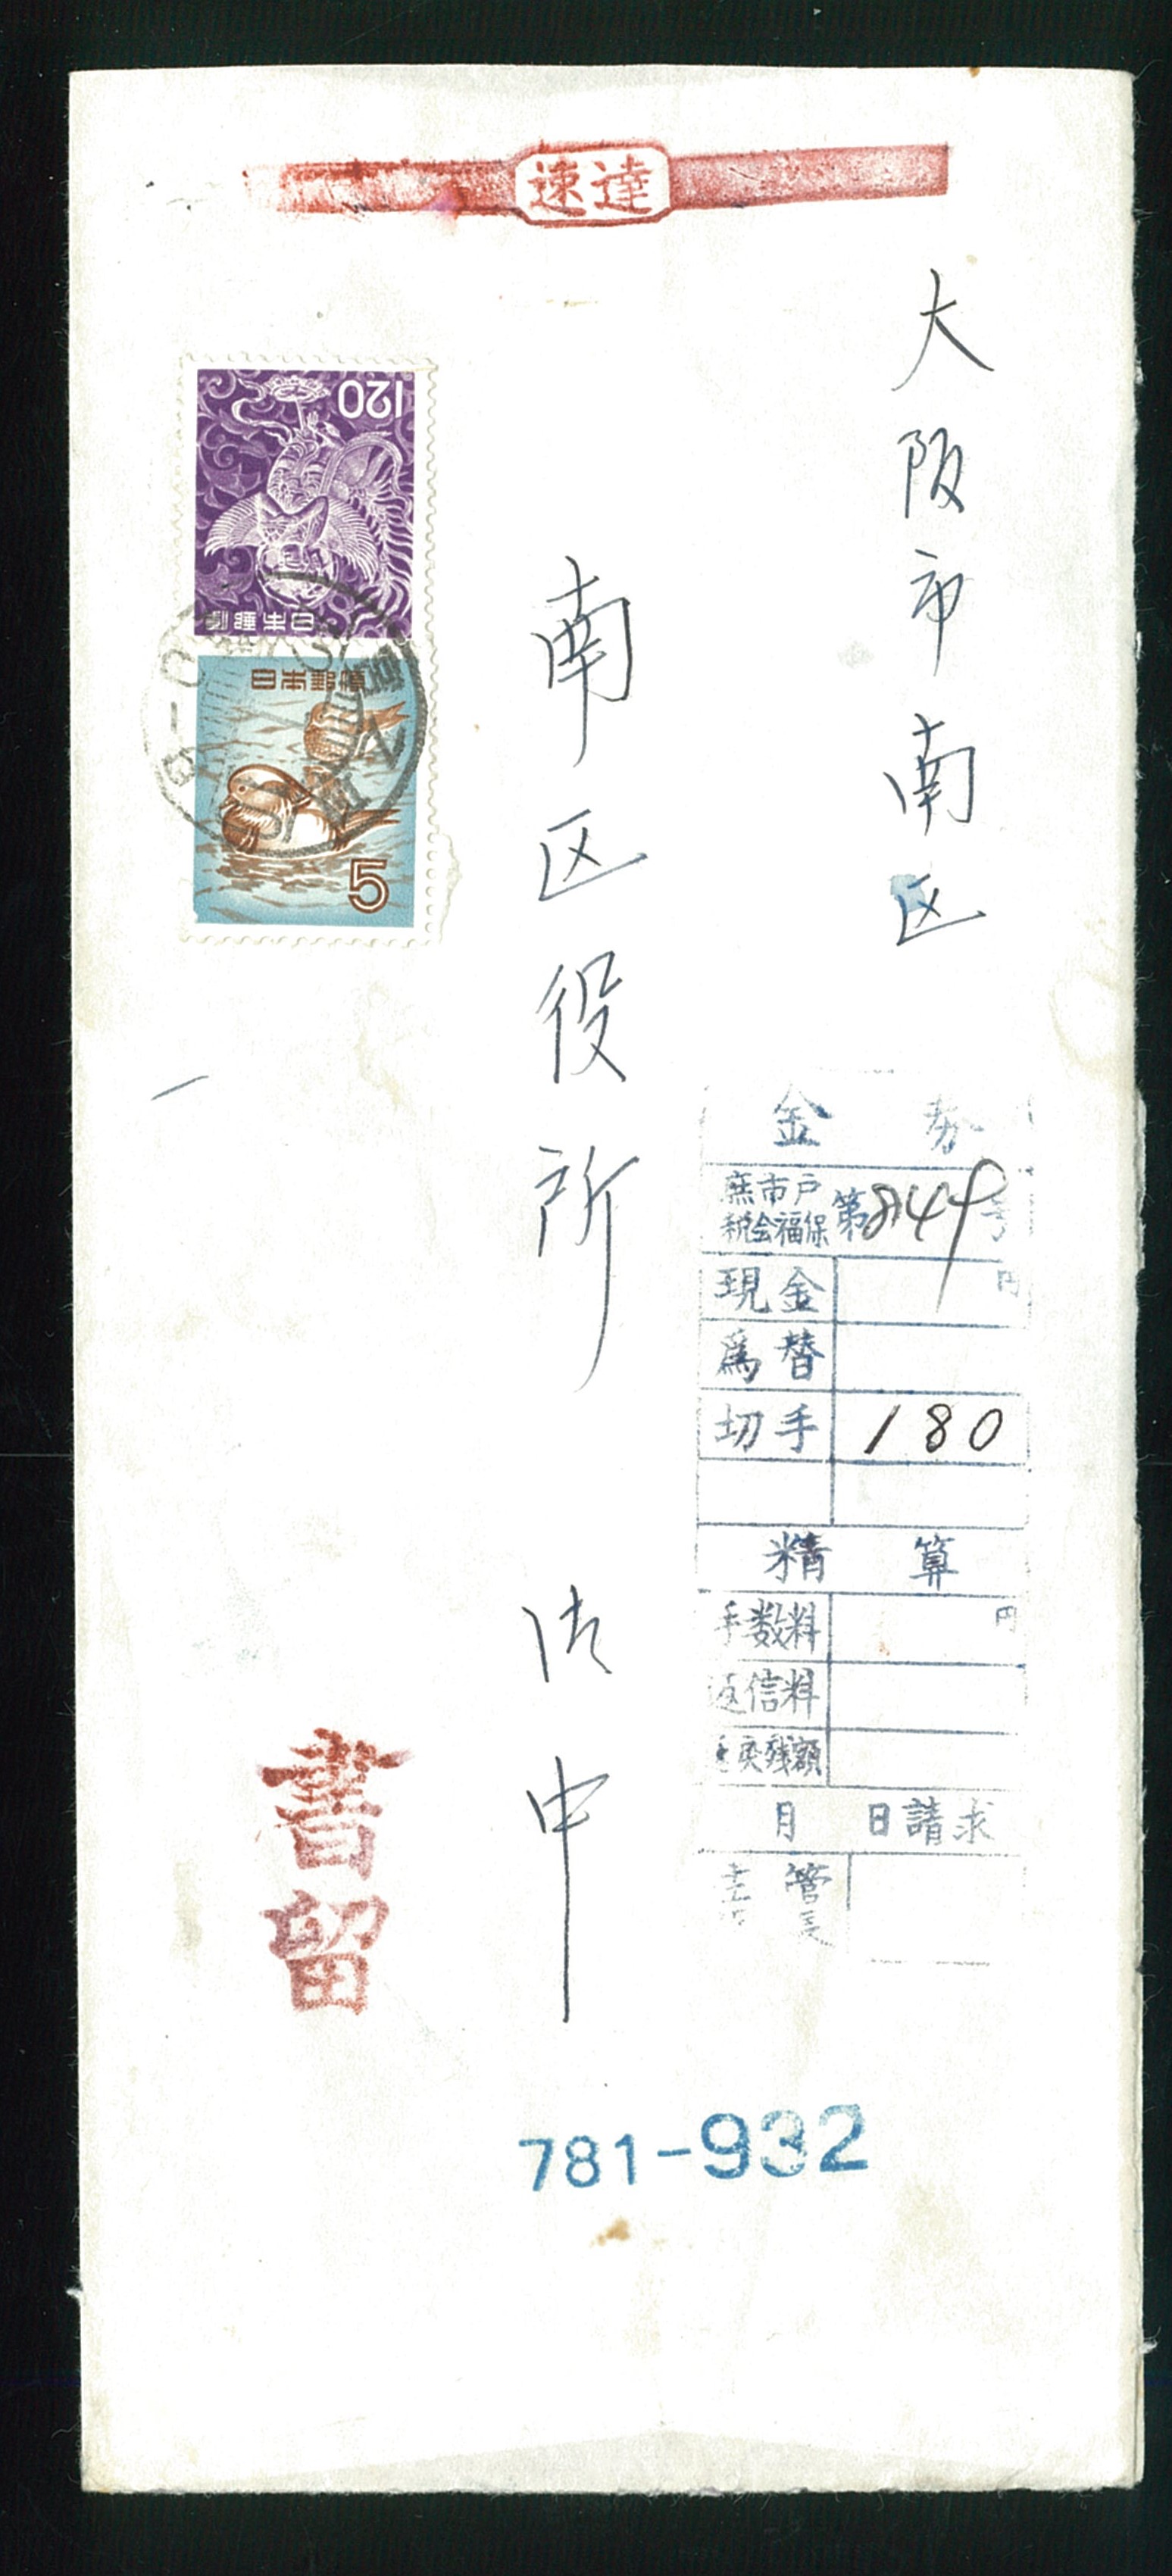 速達
大阪市南区
南区役所 御中
120
日本郵便
日本郵便
5
金 券
庶市戸
税会福保
第849号
現金 円
為替
切手 180
精 算
手数料 円
返信料
返戻残額
月 日請求
書留
781-932